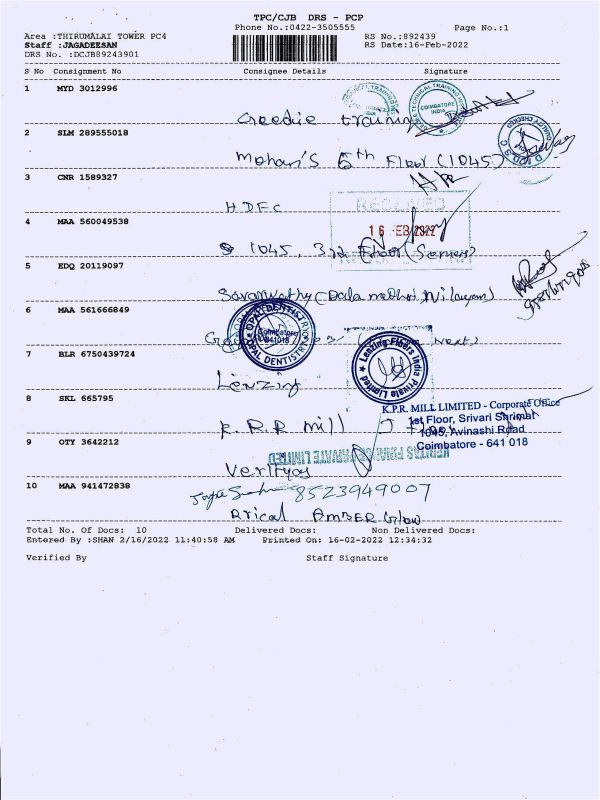 TPC/CJB DRS - PCP
Phone No.:0422-3505555 Page No.:1
Area :THIRUMALAI TOWER PC4 RS No.:892439
Staff :JAGADEESAN RS Date:16-Feb-2022
DRS No. :DCJB89243901
S No Consignment No Consignee Details Signature
1 MYD 3012996
Creedie training
COIMBATORE INDIA
2 SLM 289555018
Mohan's 6th Floor (1045)
3 CNR 1589327
HDFC
RECEIVED
4 MAA 560049538
16 FEB 2022
1045, 3rd Floor
5 EDQ 20119097
6 MAA 561666849
OPAL DENTISTRY
Coimbatore
641018
7 BLR 6750439724
Lenzing Floors India Private Limited
Lenzing
8 SKL 665795
K.P.R. MILL LIMITED - Corporate Office
1st Floor, Srivari Shrimat
1045, Avinashi Road
Coimbatore - 641 018
K.P.R mill
9 OTY 3642212
10 MAA 941472838
8523949007
Total No. Of Docs: 10 Delivered Docs: Non Delivered Docs:
Entered By :SHAN 2/16/2022 11:40:58 AM Printed On: 16-02-2022 12:34:32
Verified By Staff Signature